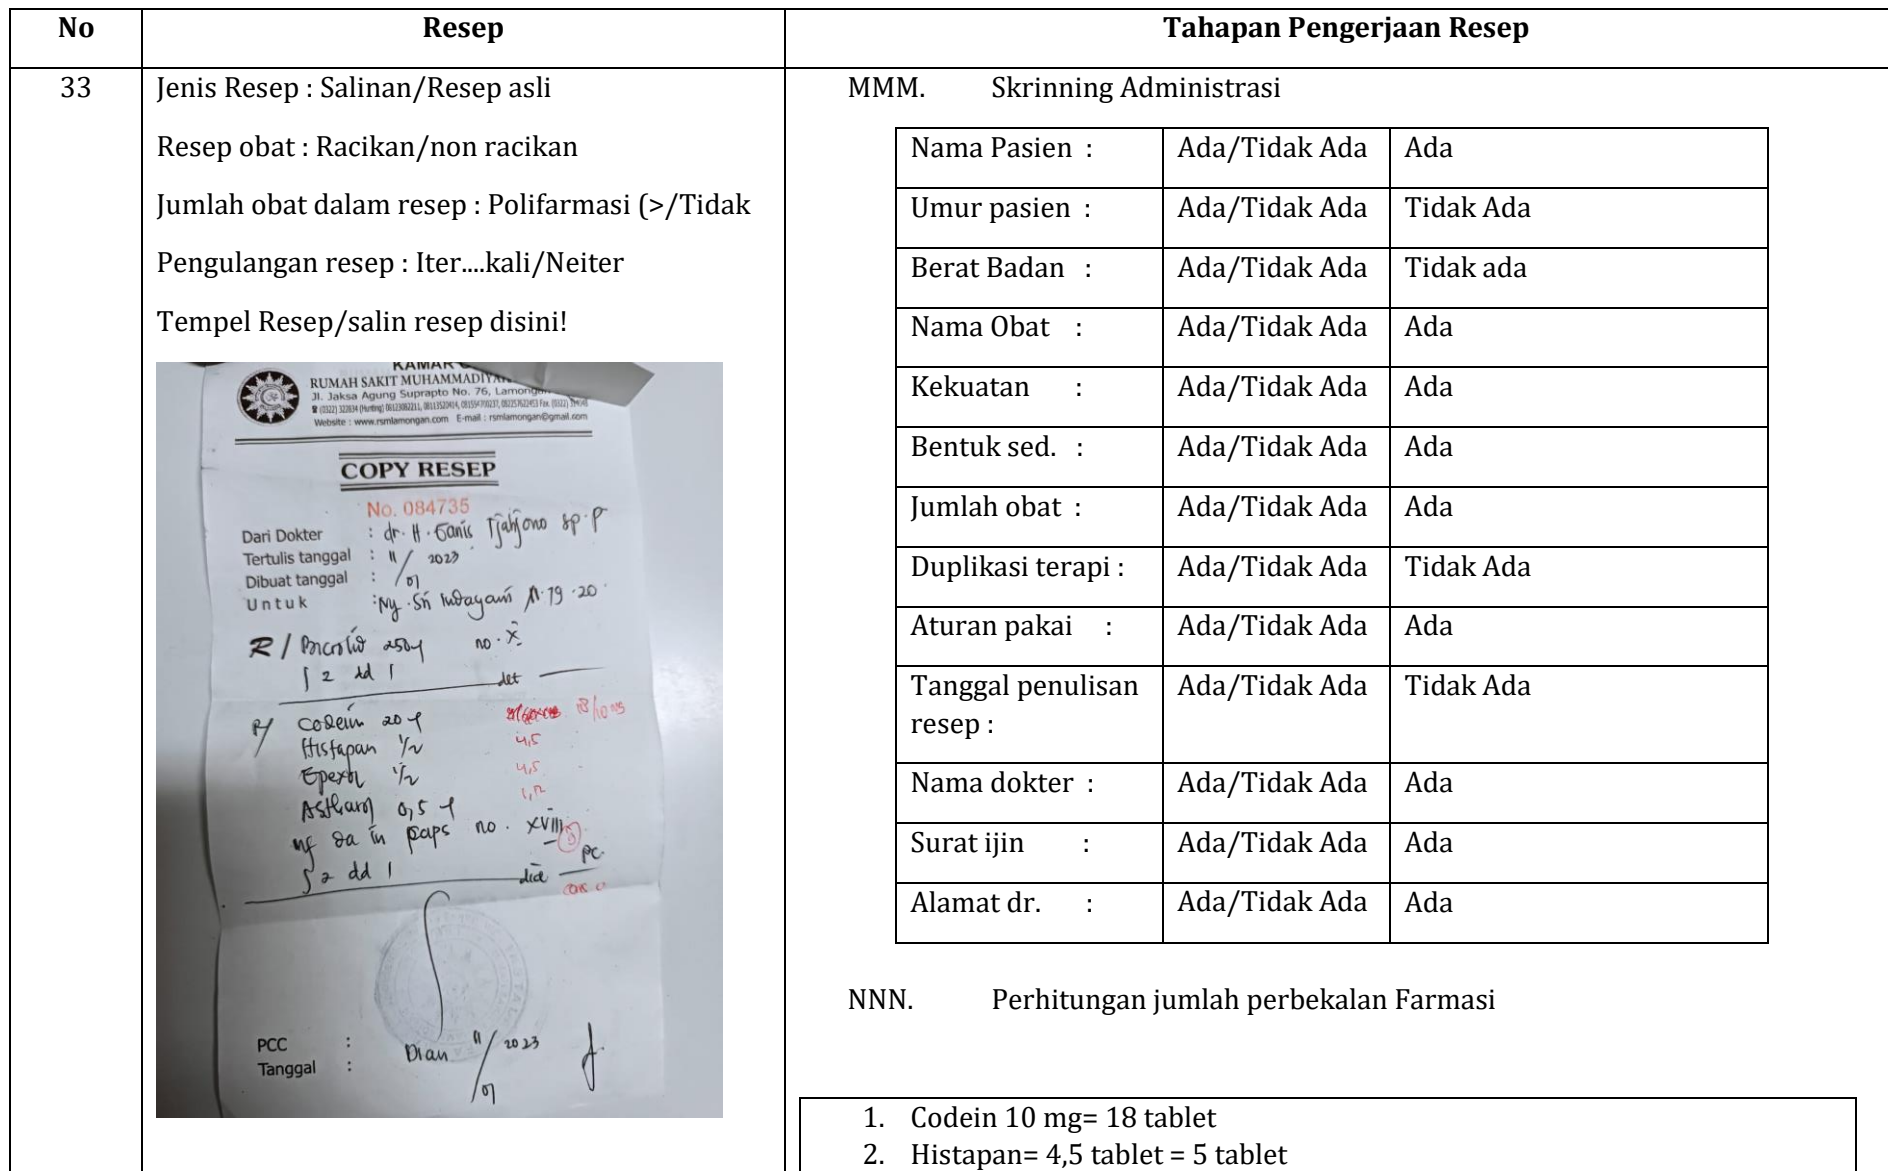 No
Resep
Tahapan Pengerjaan Resep
33
Jenis Resep : Salinan/Resep asli
Resep obat : Racikan/non racikan
Jumlah obat dalam resep : Polifarmasi (>/Tidak
Pengulangan resep : Iter....kali/Neiter
Tempel Resep/salin resep disini!
RUMAH SAKIT MUHAMMADIYAH
Jl. Jaksa Agung Suprapto No. 76, Lamongan
Website : www.rsmlamongan.com E-mail : rsmlamongan@gmail.com
COPY RESEP
No. 084735
Dari Dokter : dr. H. Ganis Tjahjono sp. P
Tertulis tanggal : 11/ 2023
Dibuat tanggal : /07
Untuk : Ny. Sri Indayani 19.20
R/ no. X
∫ 2 dd 1 det
R/ Codein 20
Histapan 1/2 4,5
Epexol 1/2 4,5
Astharol 0,5
mf da in caps no. XVIII
∫ 2 dd 1 pc
PCC :
Tanggal : Dian 11/07 2023
MMM. Skrinning Administrasi
Nama Pasien : Ada/Tidak Ada Ada
Umur pasien : Ada/Tidak Ada Tidak Ada
Berat Badan : Ada/Tidak Ada Tidak ada
Nama Obat : Ada/Tidak Ada Ada
Kekuatan : Ada/Tidak Ada Ada
Bentuk sed. : Ada/Tidak Ada Ada
Jumlah obat : Ada/Tidak Ada Ada
Duplikasi terapi : Ada/Tidak Ada Tidak Ada
Aturan pakai : Ada/Tidak Ada Ada
Tanggal penulisan Ada/Tidak Ada Tidak Ada
resep :
Nama dokter : Ada/Tidak Ada Ada
Surat ijin : Ada/Tidak Ada Ada
Alamat dr. : Ada/Tidak Ada Ada
NNN. Perhitungan jumlah perbekalan Farmasi
1. Codein 10 mg= 18 tablet
2. Histapan= 4,5 tablet = 5 tablet